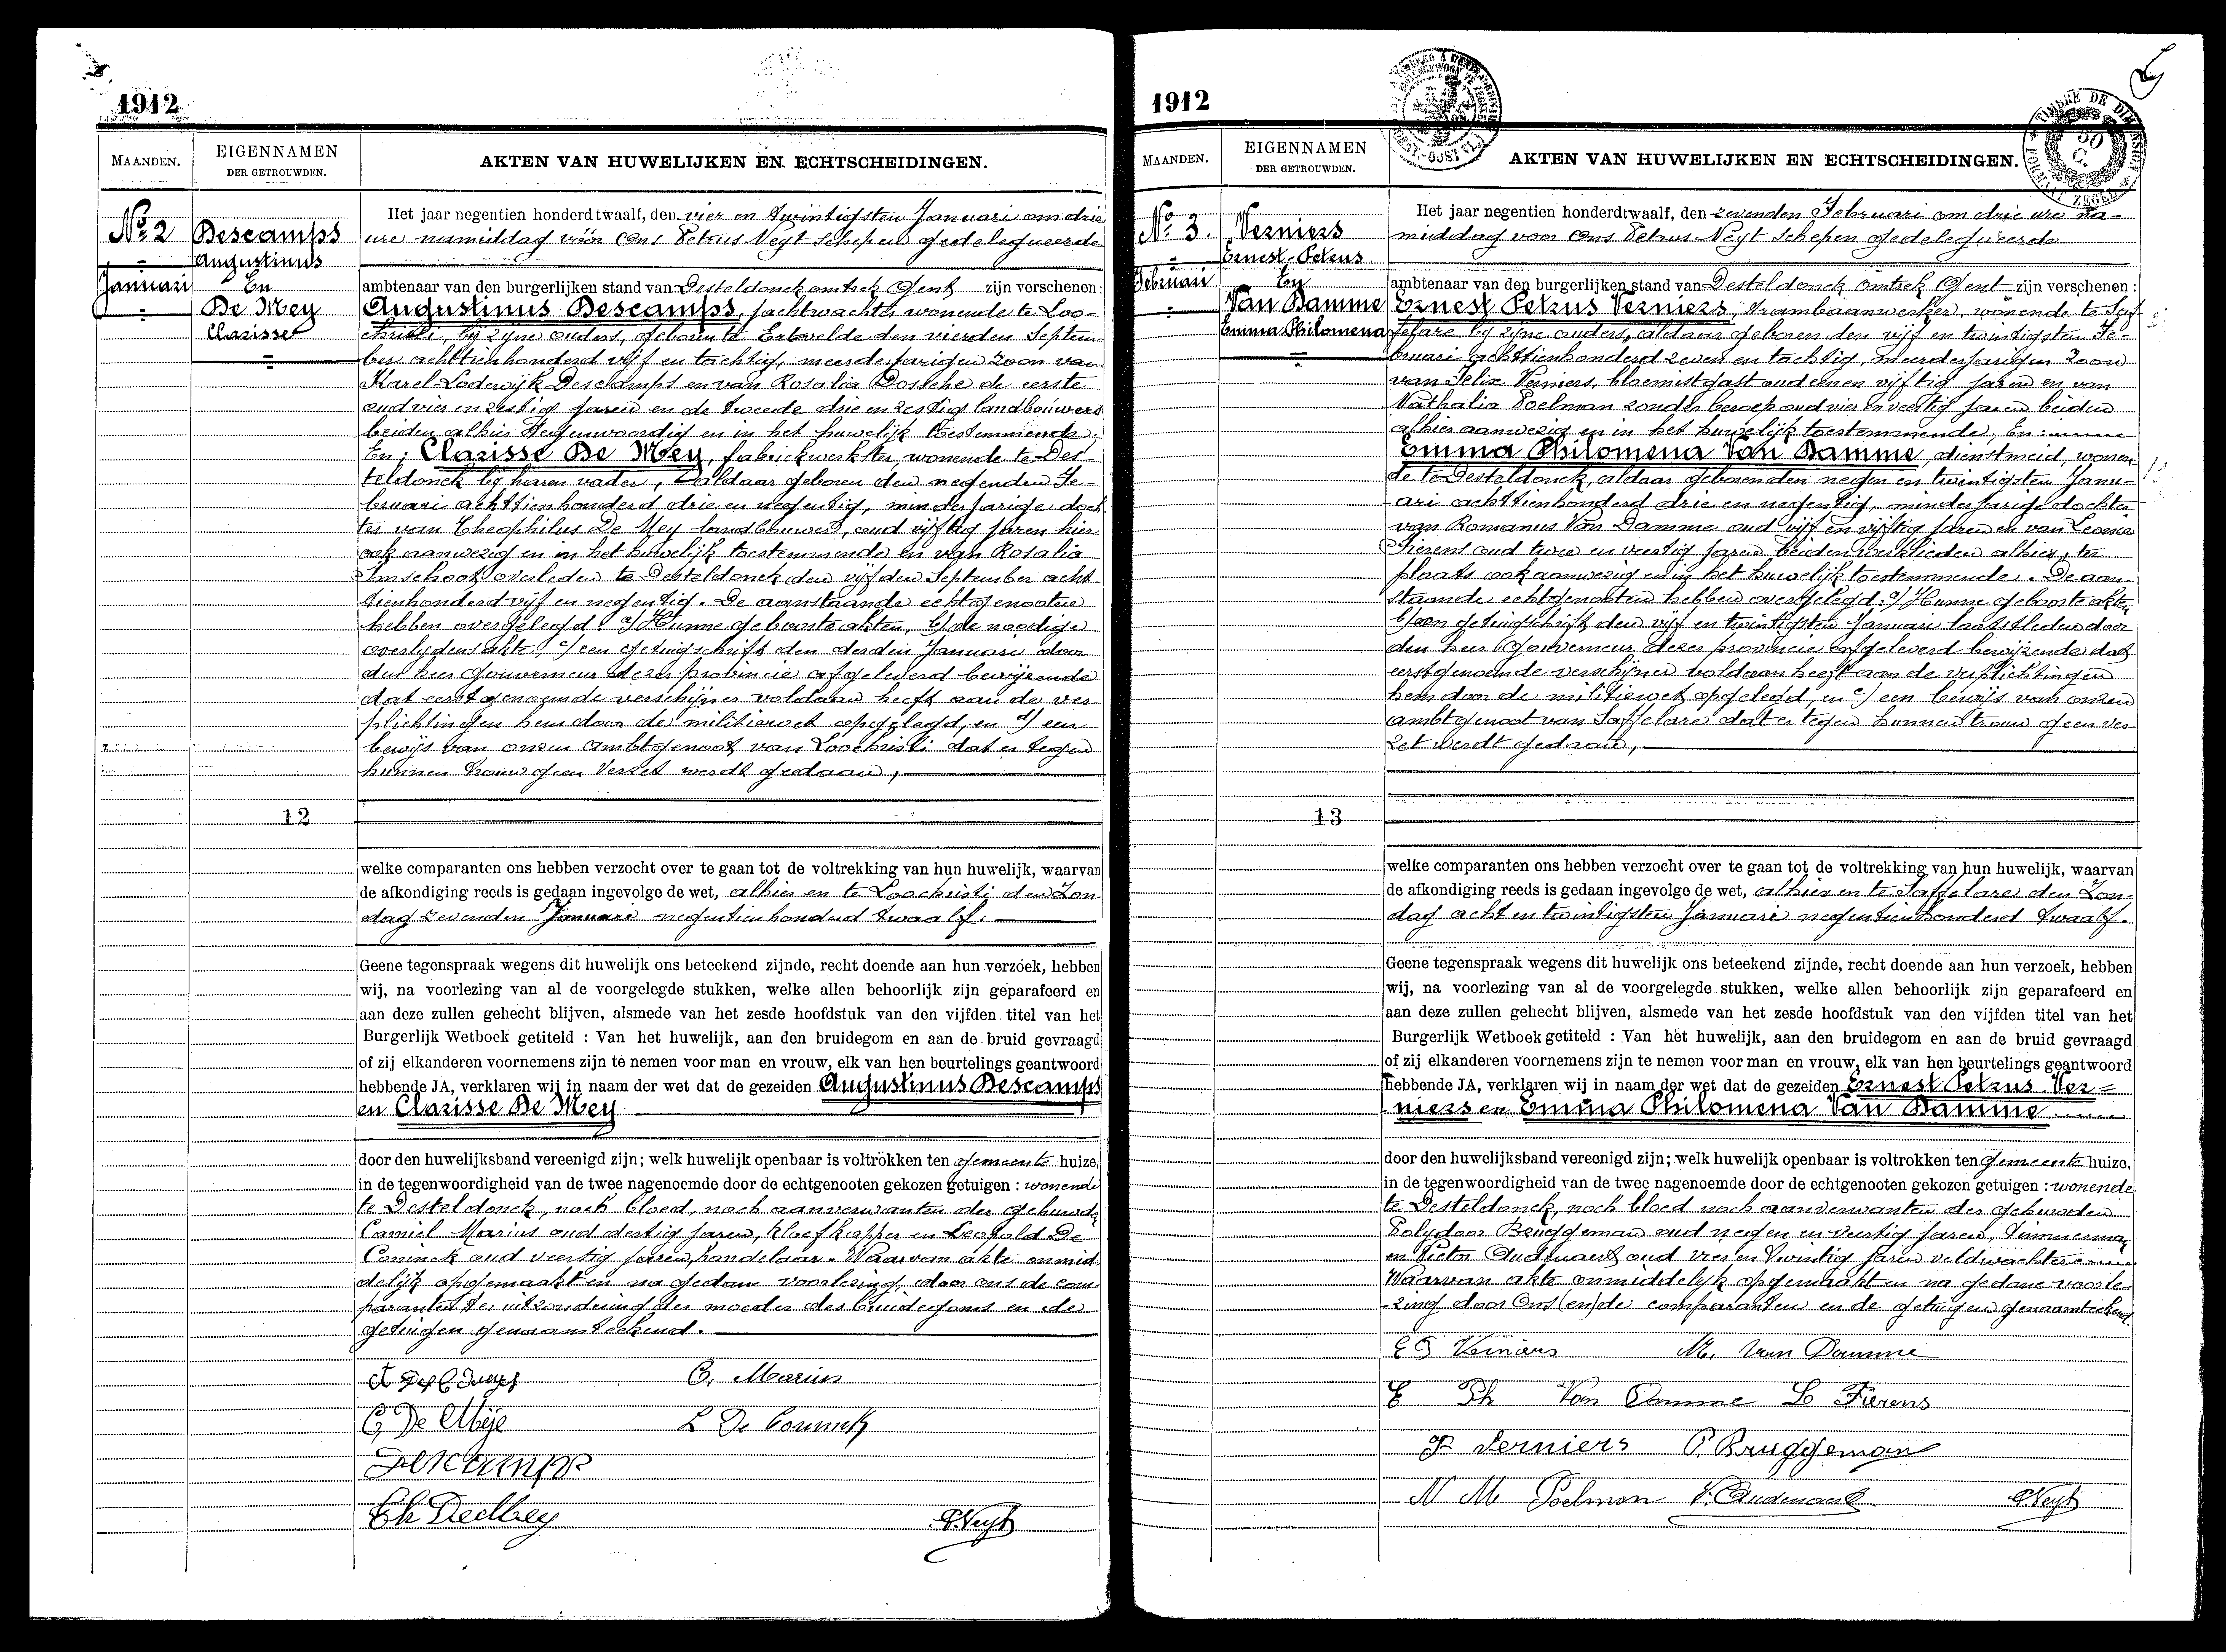 1912
MAANDEN.
EIGENNAMEN
DER GETROUWDEN.
AKTEN VAN HUWELIJKEN EN ECHTSCHEIDINGEN.
No 2
Januari
Descamps
Augustinus
En
De Mey
Clarisse
12
Het jaar negentien honderd twaalf, den vier en twintigsten Januari om drie
ure namiddag vóór Ons Petrus Neyt schepen gedelegueerde
ambtenaar van den burgerlijken stand van Desteldonck omtrek Gent zijn verschenen:
Augustinus Descamps, jachtwachter wonende te Loo-
christi, bij zijne ouders, geboren te Ertvelde den vierden Septem-
ber achttienhonderd vijf en tachtig, meerderjarigen zoon van
Karel-Lodewijk Descamps en van Rosalia Dossche de eerste
oud vier en zestig jaren en de tweede drie en zestig landbouwers
beiden alhier tegenwoordig en in het huwelijk toestemmende.
En: Clarisse De Mey, fabriekwerkster, wonende te Des-
teldonck bij haren vader, aldaar geboren den negenden Fe-
bruari achttienhonderd drie en negentig, minderjarige doch-
ter van Theophilus De Mey landbouwer, oud vijftig jaren hier
ook aanwezig en in het huwelijk toestemmende en van Rosalia
Imschoot overleden te Desteldonck den vijfden September acht
tienhonderd vijf en negentig. De aanstaande echtgenooten
hebben overgelegd: a/ Hunne geboorteakten, b/ de noodige
overlijdensakte, c/ een getuigschrift den derden Januari door
den heer Gouverneur dezer provincie afgeleverd bewijzende
dat eerstgenoemde verschijner voldaan heeft aan de ver
plichtingen hem door de militiewet opgelegd, en d/ een
bewijs van onzen ambtgenoot van Loochristi dat er tegen
hunnen trouw geen verzet werdt gedaan,
welke comparanten ons hebben verzocht over te gaan tot de voltrekking van hun huwelijk, waarvan
de afkondiging reeds is gedaan ingevolge de wet, alhier en te Loochristi den Zon
dag zevenden Januari negentienhonderd twaalf.
Geene tegenspraak wegens dit huwelijk ons beteekend zijnde, recht doende aan hun verzoek, hebben
wij, na voorlezing van al de voorgelegde stukken, welke allen behoorlijk zijn geparafeerd en
aan deze zullen gehecht blijven, alsmede van het zesde hoofdstuk van den vijfden titel van het
Burgerlijk Wetboek getiteld : Van het huwelijk, aan den bruidegom en aan de bruid gevraagd
of zij elkanderen voornemens zijn te nemen voor man en vrouw, elk van hen beurtelings geantwoord
hebbende JA, verklaren wij in naam der wet dat de gezeiden Augustinus Descamps
en Clarisse De Mey
door den huwelijksband vereenigd zijn; welk huwelijk openbaar is voltrokken ten gemeente huize,
in de tegenwoordigheid van de twee nagenoemde door de echtgenooten gekozen getuigen : wonende
te Desteldonck, noch bloed, noch aanverwanten der gehuwde
Camiel Marius oud dertig jaren, kloefkapper en Leopold De
Coninck oud veertig jaren, handelaar. Waarvan akte onmid
delijk opgemaakt en na gedane voorlezing, door ons de com
paranten, ter uitzondering der moeder des bruidegoms en de
getuigen genaamteekend.
C. Marius
C, De Meÿe
L De Coninck
Descamps
Th DeMey
P. Neyt
1912
MAANDEN.
EIGENNAMEN
DER GETROUWDEN.
AKTEN VAN HUWELIJKEN EN ECHTSCHEIDINGEN.
TIMBRE DE DIMENSION
50
C.
FORMAAT ZEGEL
No 3.
Februari
Verniers
Ernest-Petrus
En
Van Damme
Emma Philomena
13
Het jaar negentien honderdtwaalf, den zevenden Februari om drie ure na-
middag voor Ons Petrus Neyt schepen gedelegueerde
ambtenaar van den burgerlijken stand van Desteldonck omtrek Gent zijn verschenen :
Ernest Petrus Verniers, trambaanwerker, wonende te Saf-
felare bij zijne ouders, aldaar geboren den vijf en twintigsten Fe-
bruari achttienhonderd zeven en tachtig, meerderjarigen zoon
van Felix Verniers, bloemistgast oud een en vijftig jaren en van
Nathalia Poelman zonder beroep oud vier en veertig jaren beiden
alhier aanwezig en in het huwelijk toestemmende, En:
Emma Philomena Van Damme, dienstmeid, wonen-
de te Desteldonck, aldaar geboren den negen en twintigsten Janu-
ari achttienhonderd drie en negentig, minderjarige dochter
van Romanus Van Damme oud vijf en vijftig jaren en van Leonia
Fierens oud twee en veertig jaren beiden werklieden alhier, ter
plaats ook aanwezig en in het huwelijk toestemmende. De aan-
staande echtgenooten hebben overgelegd: a/ Hunne geboorteakten,
b/ een getuigschrift den vijf en twintigsten Januari laatstleden door
den heer Gouverneur dezer provincie afgeleverd bewijzende dat
eerstgenoemde verschijner voldaan heeft aan de verplichtingen
hem door de militiewet opgelegd, en c/ een bewijs van onzen
ambtgenoot van Saffelare dat er tegen hunnen trouw geen ver
zet werdt gedaan,
welke comparanten ons hebben verzocht over te gaan tot de voltrekking van hun huwelijk, waarvan
de afkondiging reeds is gedaan ingevolge de wet, alhier en te Saffelare den Zon-
dag acht en twintigsten Januari negentienhonderd twaalf.
Geene tegenspraak wegens dit huwelijk ons beteekend zijnde, recht doende aan hun verzoek, hebben
wij, na voorlezing van al de voorgelegde stukken, welke allen behoorlijk zijn geparafeerd en
aan deze zullen gehecht blijven, alsmede van het zesde hoofdstuk van den vijfden titel van het
Burgerlijk Wetboek getiteld : Van het huwelijk, aan den bruidegom en aan de bruid gevraagd
of zij elkanderen voornemens zijn te nemen voor man en vrouw, elk van hen beurtelings geantwoord
hebbende JA, verklaren wij in naam der wet dat de gezeiden Ernest Petrus Ver=
niers en Emma Philomena Van Damme
door den huwelijksband vereenigd zijn; welk huwelijk openbaar is voltrokken ten Gemeente huize,
in de tegenwoordigheid van de twee nagenoemde door de echtgenooten gekozen getuigen : wonende
te Desteldonck, noch bloed noch aanverwanten der gehuwden
Polydoor Bruggeman oud negen en veertig jaren, timmerman
en Victor Oudenaert oud vier en twintig jaren veldwachter
Waarvan akte onmiddelijk opgemaakt en na gedane voorle-
zing door Ons (en) de comparanten en de getuigen genaamteekend.
E P Verniers
M. Van Damme
E Ph Van Damme
L Fierens
F Verniers
P. Bruggeman
N M Poelman
V. Oudenaert
P. Neyt